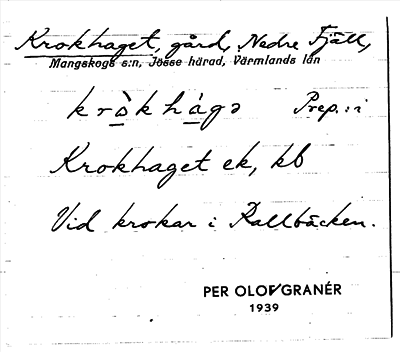 Krokhaget, gård, Nedre Fjäll,
Mangskogs s:n, Jösse härad, Värmlands län
kròkhágə Prep.: i
Krokhaget ek, kb
Vid krokar i Kallbäcken.
PER OLOF GRANÉR
1939